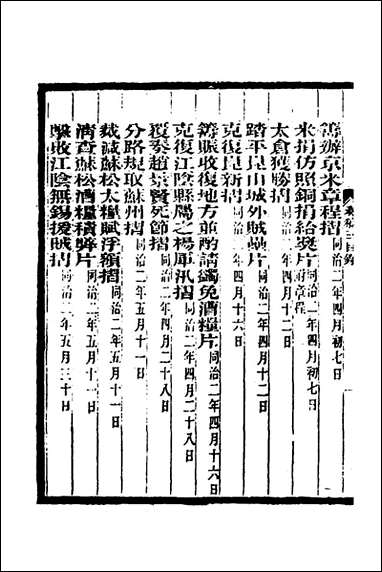 籌辦京米章程摺同治二年四月初七日
米捐仿照銅捐給獎片附章程同治二年四月初七日
太倉獲勝摺同治二年四月十二日
踏平昆山城外賊壘片同治二年四月十二日
克復昆新摺同治二年四月十六日
籌賑收復地方並酌請蠲免漕糧片同治二年四月十六日
克復江陰縣屬之楊厙汛摺同治二年四月二十八日
覆奏趙景賢死節摺同治二年四月二十八日
分路規取蘇州摺同治二年五月十一日
裁減蘇松太糧賦浮額摺同治二年五月十一日
清查蘇松漕糧積弊片同治二年五月十一日
擊敗江陰無錫援賊摺同治二年五月三十日